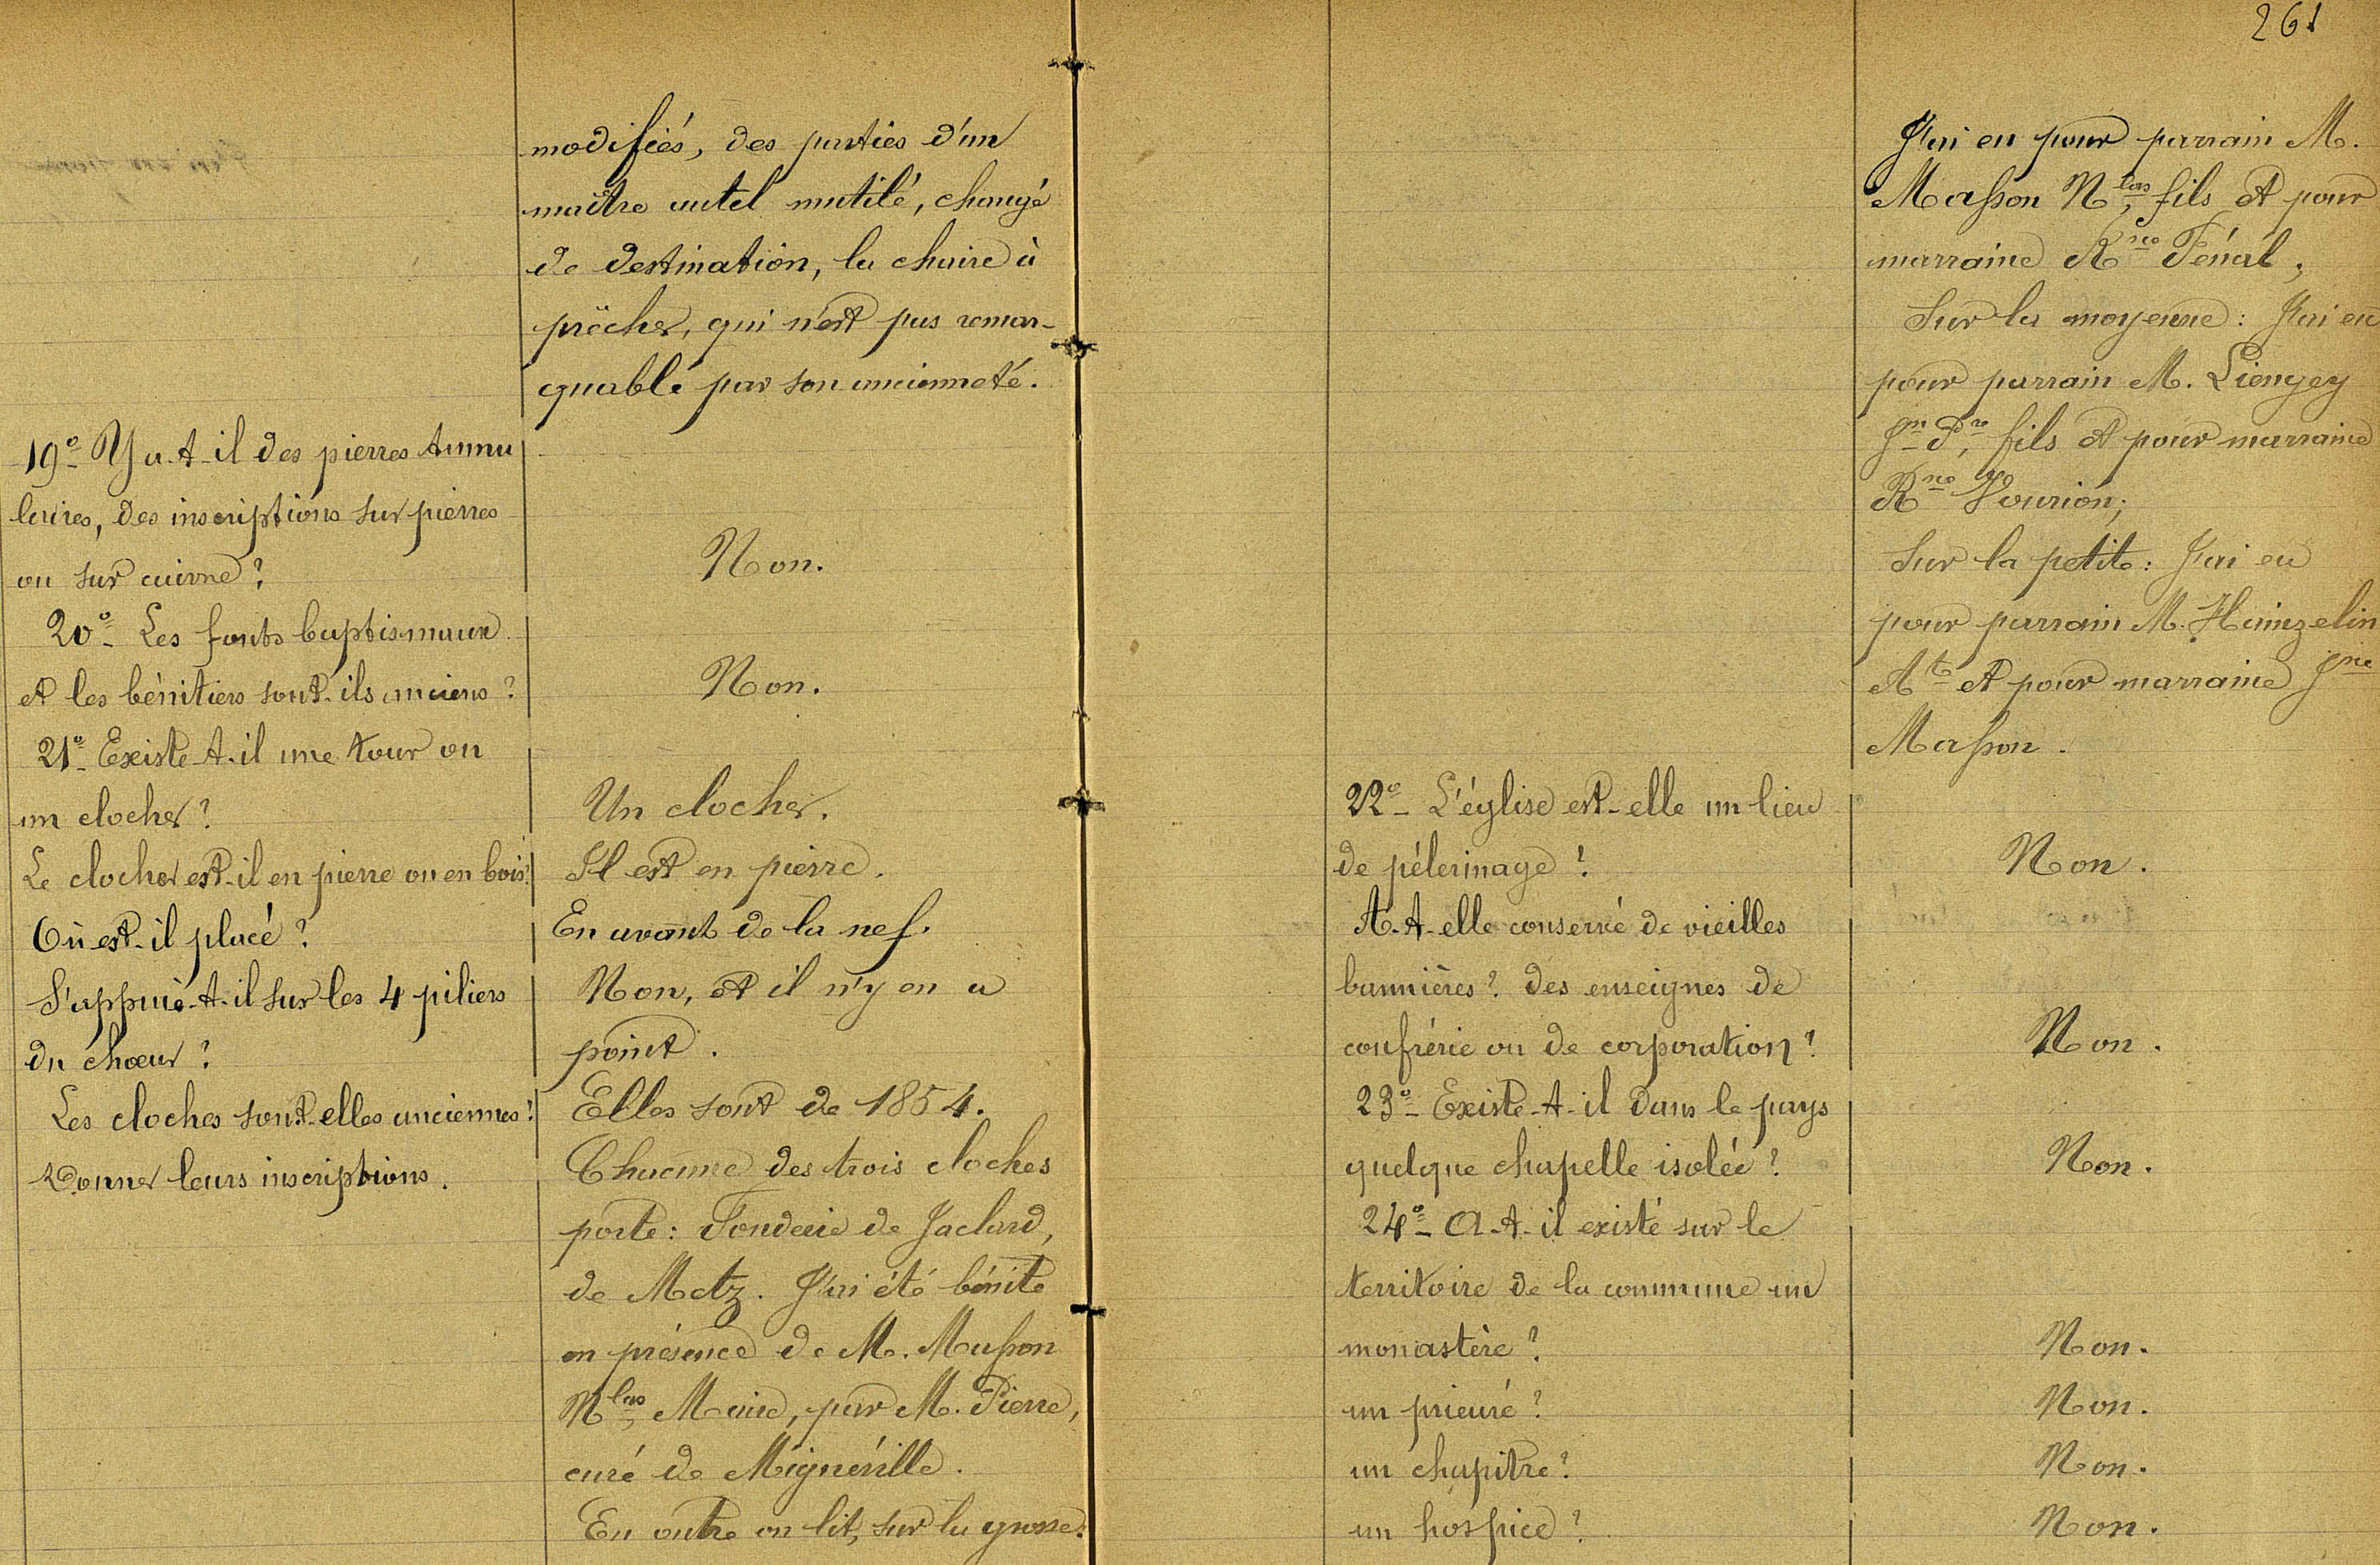 modifiés, des parties d'un
maître autel mutilé, changé
de destination, la chaire à
prêcher, qui n'est pas remar-
quable par son ancienneté.
19º- Y a-t-il des pierres tumu
laires, des inscriptions sur pierres
ou sur cuivre?
Non.
20º- Les fonts baptismaux
et les bénitiers sont-ils anciens?
Non.
21º- Existe-t-il une tour ou
un clocher?
Un clocher.
Le clocher est-il en pierre ou en bois?
Il est en pierre.
Où est-il placé?
En avant de la nef.
S'appuie-t-il sur les 4 piliers
du chœur?
Non, et il n'y en a
point.
Les cloches sont-elles anciennes?
Donner leurs inscriptions.
Elles sont de 1854.
Chacune des trois cloches
porte: Fonderie de Jaclard,
de Metz. J'ai été bénite
en présence de M. Masson
Nlas, Maire, par M. Pierre,
curé de Mignéville.
En outre on lit, sur la grosse:
261
J'ai eu pour parrain M.
Masson Nlas, fils et pour
marraine Rne Fénal;
Sur la moyenne: J'ai eu
pour parrain M. Liengey
Jn Pre, fils et pour marraine
Rne Vourion;
Sur la petite: J'ai eu
pour parrain M. Hainzelin
Ate et pour marraine Jne
Masson.
22º- L'église est-elle un lieu
de pélerinage?
Non.
A-t-elle conservé de vieilles
bannières? des enseignes de
confrérie ou de corporation?
Non.
23º- Existe-t-il dans le pays
quelque chapelle isolée?
Non.
24º- A-t-il existé sur le
territoire de la commune un
monastère?
Non.
un prieuré?
Non.
un chapitre?
Non.
un hospice?
Non.